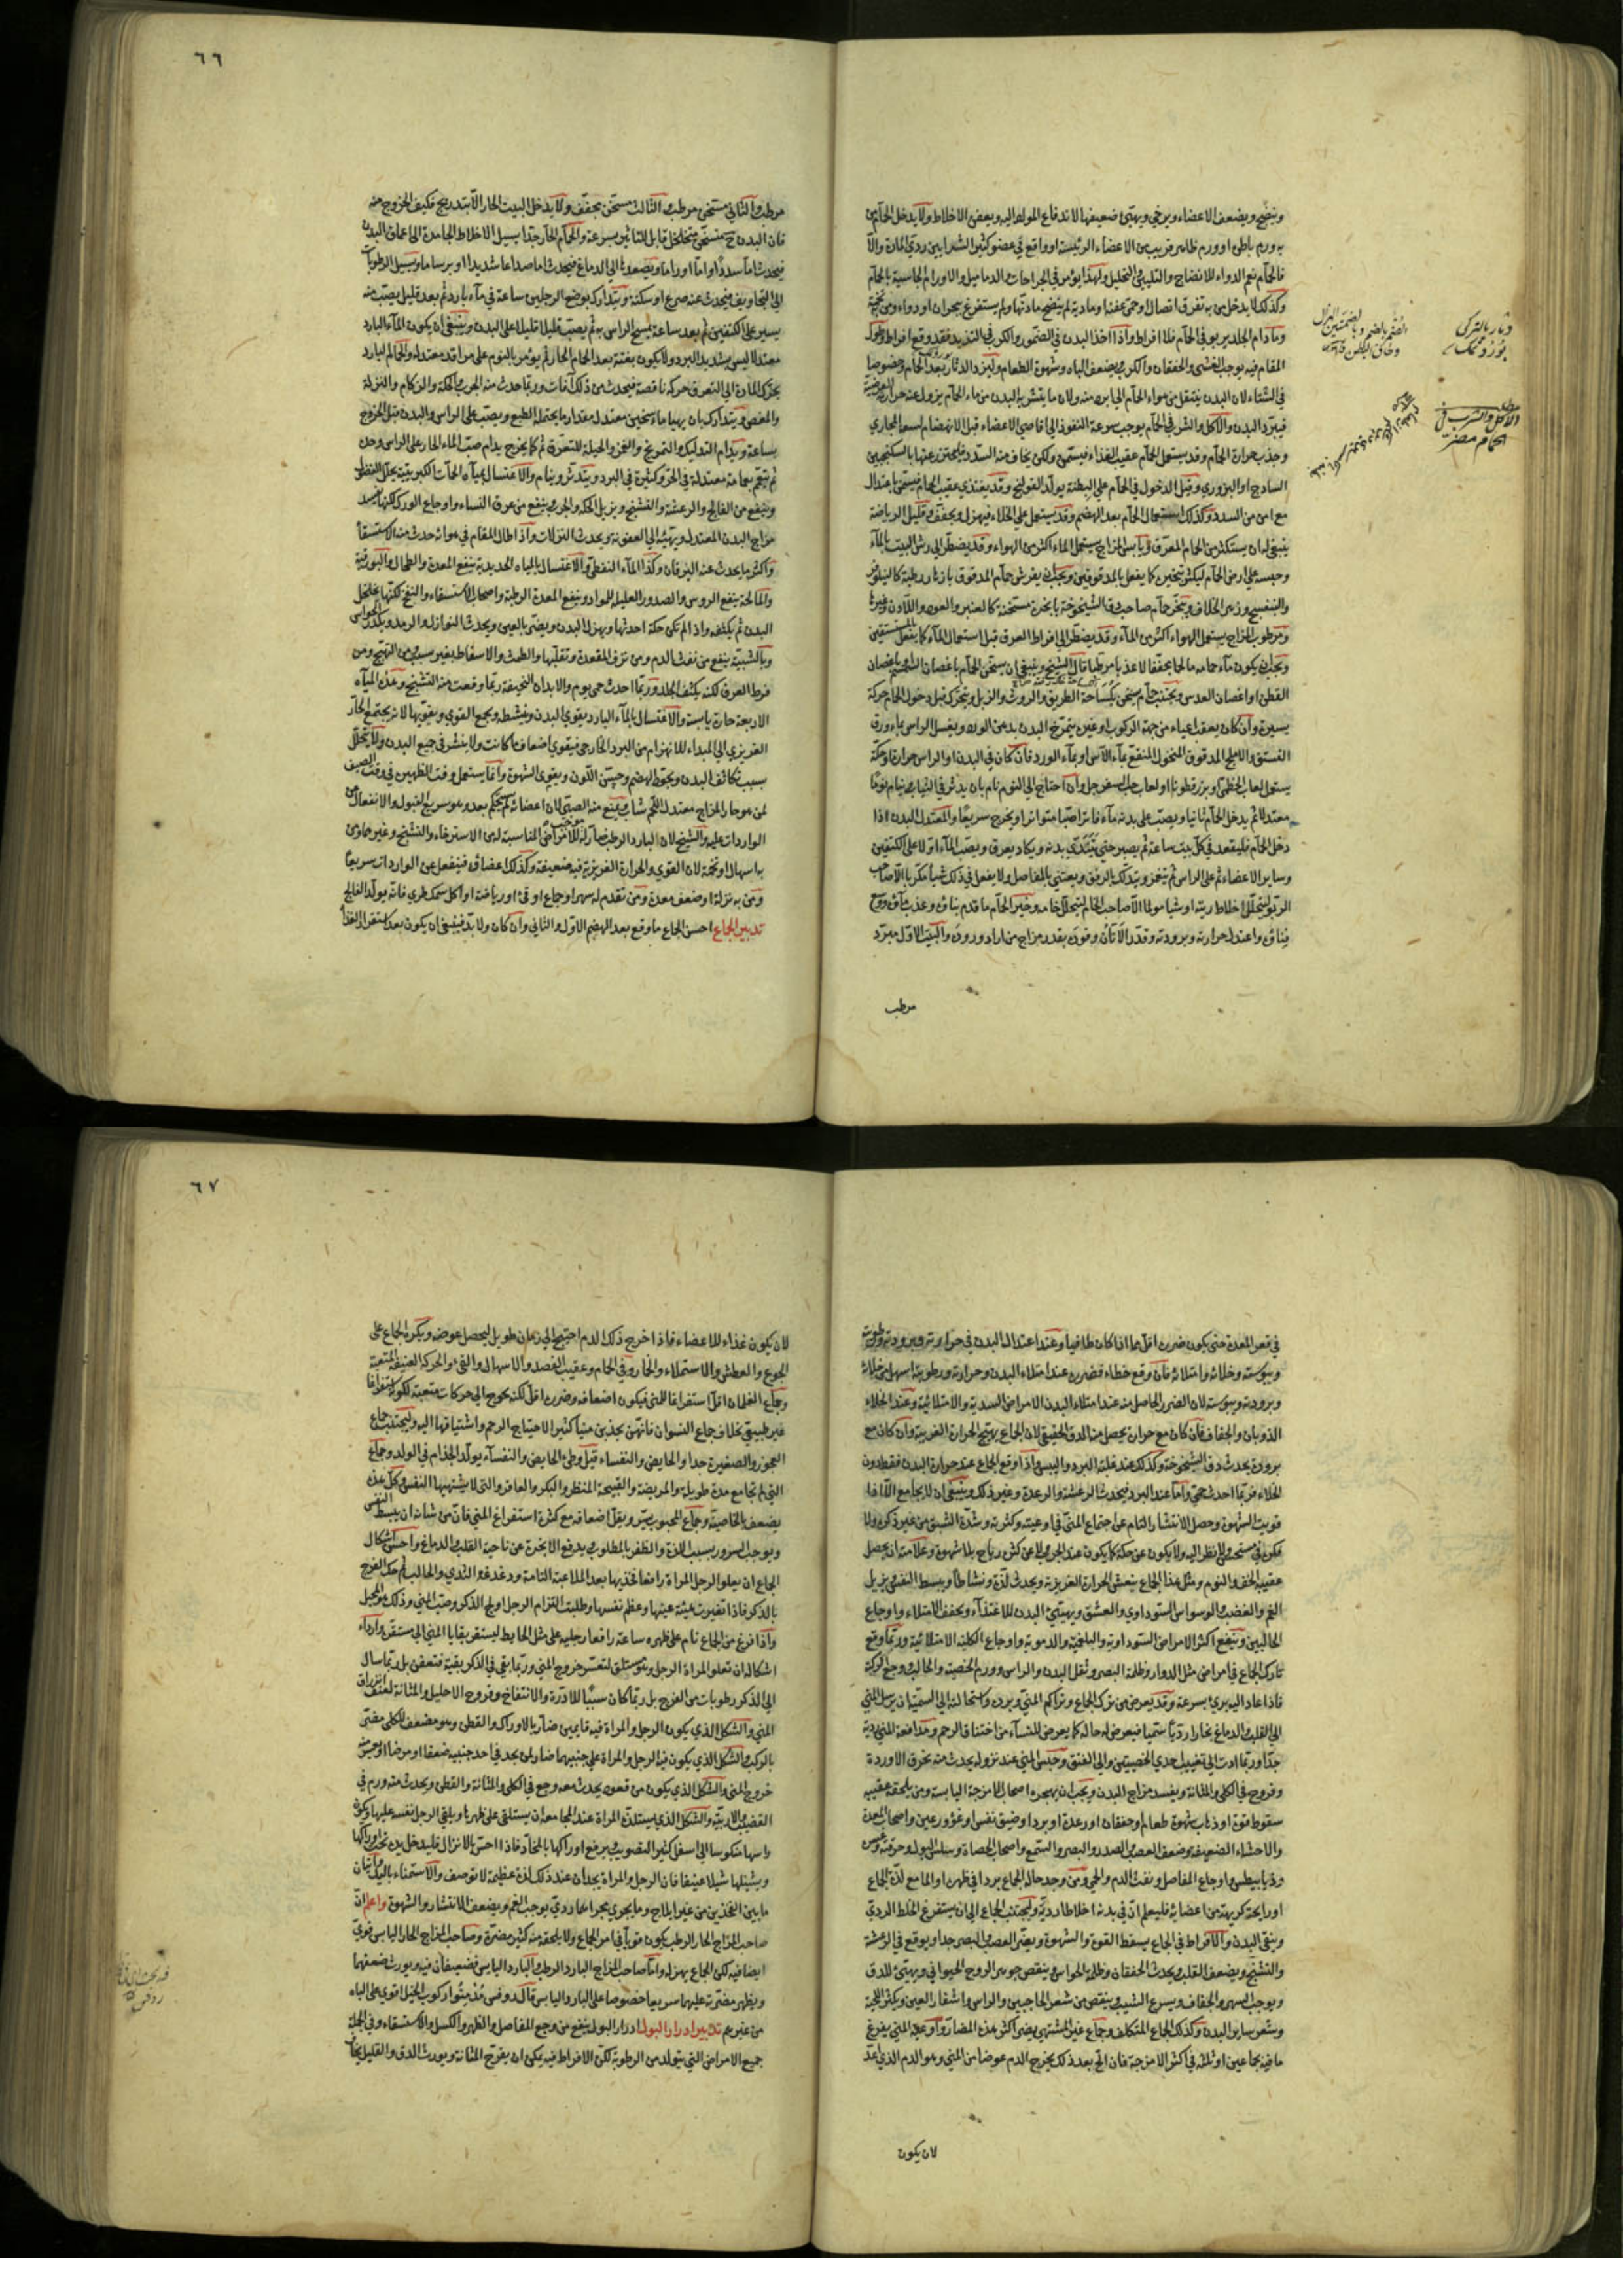 وينضج ويضعف الاعضاء ويرخي ويهيئ ضعيفها لاندفاع المواد اليه وبعض الاخلاط ولا يدخل الحمام من
به ورم باطن او ورم ظاهر قريب من الاعضاء الرئيسة او واقع في عضو كثير الشرايين ردي المادة والا
فالحمام نعم الدواء للانضاج والتليين والتحليل ولهذا يؤمر في الجراحات والدماميل والاورام الجاسية بالحمام
وكذلك لا يدخل من به تفرق اتصال او حمى عفنة او مادية لم ينضج مادتها ولم يستفرغ ببحران او دواء ومن به تخمة
وما دام الجلد يربو في الحمام فلا افراط واذا اخذ البدن في الضمور والكرب في التزيد فقد وقع افراط وطول
المقام فيه يوجب الغشي والخفقان والكرب ويضعف الباه وشهوة الطعام وليزد الدثار بعد الحمام وخصوصا
في الشتاء لان البدن ينتقل من هواء الحمام الى ابرد منه ولان ما يتشربه البدن من ماء الحمام يزول عنه حرارته العرضية
فيبرد البدن والاكل والشرب في الحمام يوجب سرعة النفوذ الى اقاصي الاعضاء قبل الانهضام لسعة المجاري
وجذب حرارة الحمام وقد يستعمل الحمام عقيب الغذاء فيسمن ولكن يخاف منه السدد فليحترز عنها بالسكنجبين
الساذج او البزوري وقبل الدخول في الحمام على البطنة يولد القولنج وقد يغتذي عقيب الحمام فيسمن باعتدال
مع امن من السدد وكذلك استعمال الحمام بعد الهضم وقد يستعمل على الخلاء فيهزل ويجفف وقليل الرياضة
ينبغي له ان يستكثر من الحمام المعرق ويابس المزاج يستعمل الماء اكثر من الهواء وقد يضطر الى رش البيت بالماء
وحبسه على ارض الحمام ليكثر تبخيره كما يفعل بالمدقوقين ويجب ان يفرش حمام المدقوق بازهار رطبة كالنيلوفر
والبنفسج وزهر الخلاف ويبخر حمام صاحب دق الشيخوخة بابخرة مسخنة كالعنبر والعود واللادن وغيرها
ومرطوب المزاج يستعمل الهواء اكثر من الماء وقد يضطر الى افراط العرق قبل استعمال الماء كما يفعل بالمستسقين
ويجب ان يكون ماء حمامه مالحا مجففا لا عذبا مرطبا قال الشيخ وينبغي ان يسخن الحمام باغصان
القطن او اغصان العدس ويجتنب حمام يسخن بكساحة الطريق والروث والزبل ويتحرك قبل دخول الحمام حركة
يسيرة وان كان بعقب اعياء من جهة الركوب او غيره يتمرخ البدن بدهن الورد ويغسل الراس بماء ورق
يستعمل لعاب الخطمي او بزر قطونا او لعاب حب السفرجل وان احتاج الى النوم نام بان يدثر في الثياب وينام نوما
معتدلا ثم يدخل الحمام ثانيا ويصب على بدنه ماء فاترا صبا متواترا ويخرج سريعا والمعتدل البدن اذا
دخل الحمام فليقعد في كل بيت ساعة ثم يصبر حتى يتندى بدنه ويكاد يعرق ويصب الماء اولا على الكتفين
وساير الاعضاء ثم على الراس ثم يتغمز ويتدلك بالرفق ويعتني بالمفاصل
الربو لتحلل اخلاط ريته وخير الحمام ما قدم بناؤه وعذب ماؤه ووسع
فناؤه واعتدل حرارته وبرودته وقدر الاتان وقوده بقدر مزاج من اراد وروده والبيت الاول مبرد
مرطب
دثار بالتركي
الاكل والشرب في
الحمام مضر
٦٦
مرطب والثاني مسخن مرطب والثالث مسخن مجفف ولا يدخل البيت الحار الا بتدريج فكيف الخروج منه
فان البدن ح متسخن متخلخل قابل للتاثير بسرعة والحمام الحار جدا يسيل الاخلاط الجامدة الى اعماق البدن
فيحدث اما سددا واما اوراما ويصعدها الى الدماغ فيحدث اما صداعا شديدا او برساما ويسيل الرطوبات
الى التجاويف فيحدث عنه صرع او سكتة ويتدارك بوضع الرجلين ساعة في ماء بارد ثم بعد قليل يصب منه
يسير على الكتفين ثم بعد ساعة يمسح الراس به ثم يصب قليلا قليلا على البدن وينبغي ان يكون الماء البارد
معتدلا ليس بشديد البرد ولا يكون بغتة بعد الحمام الحار ثم يؤمر بالنوم على مراقد معتدلة والحمام البارد
يحرك المادة الى التعرق حركة ناقصة فيحدث من ذلك آفات وربما حدث منه الجرب والحكة والزكام والنزلة
والمغص ويتدارك بان يهيا ماء سخين معتدل مقدار ما يحتمله الطبع ويصب على الراس والبدن قبل الخروج
بساعة ويدام التدليك والتمريخ والغمز والحيلة للتعرق ثم كما يخرج يدام صب الماء الحار على الراس وحده
ثم يتعمم بعمامة معتدلة في الحر وكثيرة في البرد ويتدثر وينام والاغتسال بمياه الحمات الكبريتية يحلل الفضول
وينفع من الفالج والرعشة والتشنج ويزيل الحكة والجرب وينفع من عرق النساء واوجاع الورك لكنها تفسد
مزاج البدن المعتدل ويهيئه الى العفونة ويحدث النزلات واذا طال المقام في هوائه حدث منه الاستسقاء
واكثر ما يحدث عنه اليرقان وكذا الماء النفطي والاغتسال بالمياه الحديدية ينفع المعدة والطحال والبورقية
والمالحة ينفع الروس والصدور العليلة للمواد وينفع المعدة الرطبة واصحاب الاستسقاء والنفخ لكنها يخلخل
البدن ثم يكثفه واذا لم تكن حكة احدثها ويهزل البدن ويضر بالعين ويحدث النوازل والرمد ويكدر الحواس
وبالشبية ينفع من نفث الدم ومن نزف المقعدة وتقلبها والطمث والاسقاط بغير سبب ومن التهيج ومن
فرط العرق لكنه يكثف الجلد وربما احدث حمى يوم والابدان النحيفة ربما وقعت منه التشنج وهذه المياه
الاربعة حارة يابسة والاغتسال بالماء البارد يقوي البدن وينشطه ويجمع القوي ويقويها لانه يجتمع الحار
الغريزي الى المبداء للانهزام من البرد الخارجي فيقوى اضعاف ما كانت ولا ينشر في جميع البدن ولا يتحلل
بسبب تكاثف البدن ويجود الهضم ويحسن اللون ويقوى الشهوة وانما يستعمل وقت الظهيرة في وقت الصيف
لمن هو حار المزاج معتدل اللحم شاب ويمنع منه الصبي لان اعضائه لم تستحكم بعد وهو سريع القبول والانفعال من
الواردات عليه والشيخ لان البارد الرطب مآله للامراض المناسبة لهن الاسترخاء والتشنج وغير هما ومن
به اسهال او تخمة لان القوي والحرارة الغريزية فيه ضعيفة وكذلك اعضاؤه فينفعل عن الواردات سريعا
ومن به نزلة او ضعف معدة ومن تقدم له سهر او جماع او قئ او رياضة او اكل سمك طري فانه يولد الفالج
تدبير الجماع احسن الجماع ما وقع بعد الهضم الاول والثاني وان كان ولا بد فينبغي ان يكون بعد استقرار الغذاء
في قعر المعدة حتى يكون ضرره اقل مما اذا كان طافيا وعند اعتدال البدن في حرارته وبرودته ورطوبته
ويبوسته وخلائه وامتلائه فان وقع خطاء فضرره عند امتلاء البدن وحرارته ورطوبته اسهل من خلائه
وبرودته ويبوسته لان الضرر الحاصل منه عند امتلاء البدن الامراض السددية والامتلائية وعند الخلاء
الذوبان والجفاف فان كان مع حرارة يحصل منه الدق الحقيقي لان الجماع يهيج الحرارة الغريبة وان كان مع
برودة يحدث دق الشيخوخة وكذلك عند غلبة البرد واليبس واذا وقع الجماع عند حرارة البدن فقط دون
الخلاء فربما احدث حمى واما عند البرد فيحدث الرعشة والرعدة وغير ذلك وينبغي ان لا يجامع الا اذا
قويت الشهوة وحصل الانتشار التام عن اجتماع المني في اوعيته وكثرته وشدة الشبق من غير ذكر ولا
فكر في مستحسن ولا نظر اليه ولا يكون عن حكة كما يكون عند الجرب ولا عن كثرة رياح بلا شهوة وعلامته ان يحصل
عقيبه الخف والنوم ومثل هذا الجماع ينعش الحرارة الغريزية ويحدث لذة ونشاطا ويبسط النفس ويزيل
الغم والغضب والوسواس السوداوي والعشق ويهيئ البدن للاغتذاء ويخفف الامتلاء واوجاع
الحالبين وينفع اكثر الامراض السوداوية والبلغمية والدموية واوجاع الكلية الامتلائية وربما وقع
تارك الجماع في امراض مثل الدوار وظلمة البصر وثقل البدن والراس وورم الخصية والحالب ووجع الركبة
فاذا عاد اليه برئ بسرعة وقد يعرض من ترك الجماع وتراكم المني وبرده واستحالته الى السمية ان يرسل المني
الى القلب والدماغ بخارا رديا سميا فيعرض له حالة كما يعرض للنساء من اختناق الرحم ومدافعة المني ردية
جدا وربما ادت الى تغييب احدي الخصيتين والى الفتق وحبس المني عند نزوله يحدث منه تخرق الاوردة
وقروح في الكلى والمثانة ويفسد مزاج البدن ويجب ان يهجره اصحاب الامزجة اليابسة ومن يلحقه عقيبه
سقوط قوة او ذهاب شهوة طعام او خفقان او رعدة او برد او ضيق نفس او غؤور عين واصحاب المعدة
والاحشاء الضعيفة وضعف العصب والصدر والبصر والسمع واصحاب الحصاة وسلس البول وحرقته وعسره
وذيابيطس واوجاع المفاصل ونفث الدم والحمى ومن وجد حالة الجماع بردا في ظهره او الما مع لذة الجماع
او رايحة كريهة من اعضائه فليعلم ان في بدنه اخلاطا ردية وليجتنب الجماع الى ان يستفرغ الخلط الردي
وينقى البدن والافراط في الجماع يسقط القوة والشهوة ويضر العصب والبصر جدا ويوقع في الرعشة
والتشنج ويضعف القلب ويحدث الخفقان وظلمة الحواس وينقص جوهر الروح الحيواني ويهيئ للدق
ويوجب السهر والجفاف ويسرع الشيب وينقص من شعر الحاجبين والراس واشفار العين ويكثر اللحية
وشعر ساير البدن وكذلك الجماع المتكلف وجماع غير المشتهى يضر اكثر هذه المضار واوعية المني يفرغ
ما فيه بجماعين او ثلثة في اكثر الامزجة فان الح بعد ذلك يخرج الدم عوضا من المني وهو الدم الذي اعد
لان يكون
٦٧
لان يكون غذاء للاعضاء فاذا خرج ذلك الدم احتيج الى زمان طويل ليحصل عوضه ويكره الجماع على
الجوع والعطش والاستملاء والخمار وفي الحمام وعقيب الفصد والاسهال والقئ والحركة العنيفة المتعبة
وجماع الغلمان اقل استفراغا للمني فيكون اضعافه وضرره اقل لكنه يحوج الى حركات متعبة لكونه استفراغا
غير طبيعي بخلاف جماع النسوان فانهن يجذبن منيا كثيرا لاحتياج الرحم واشتياقها اليه وليجتنب جماع
العجوز والصغيرة جدا والحايض والنفساء قيل وطئ الحايض والنفساء يولد الجذام في الولد وجماع
التي لم تجامع مدة طويلة والمريضة والقبيحة المنظر والبكر والعاقر والتي لا يشتهيها النفس وكل هذه
يضعف بالخاصية وجماع المحبوب يسر ويقل اضعافه مع كثرة استفراغ المني فان من شانه ان يبسط النفس
ويوجب السرور بسبب اللذة والظفر بالمطلوب ويدفع الابخرة عن ناحية القلب والدماغ واحسن اشكال
الجماع ان يعلو الرجل المراة رافعا فخذيها بعد الملاعبة التامة ودغدغة الثدي والحالب ثم حك الفرج
بالذكر فاذا تغيرت هيئة عينها وعظم نفسها وطلبت التزام الرجل اولج الذكر وصب المني وذلك هو المحبل
واذا فرغ من الجماع نام على ظهره ساعة رافعا رجليه على مثل الحايط ليستقر بقايا المني الى مستقره واردأ
اشكاله ان تعلو المراة الرجل وهو مستلق لتعسر خروج المني وربما بقي في الذكر بقية فتعفن بل ربما سال
الى الذكر رطوبات من الفرج بل ربما كان سببا للادرة والانتفاخ وقروح الاحليل والمثانة لعنف انزراق
المني والشكل الذي يكون الرجل والمراة فيه قايمين ضار بالاوراك والقطن وهو مضعف للكلى مضر
بالركب والشكل الذي يكون فيه الرجل والمراة على جنبيهما ضار لمن يجد في احد جنبيه ضعفا او مرضا
خروج المني والشكل الذي يكون من قعود يحدث معه وجع في الكلى والمثانة والقطن ويحدث منه ورم في
القضيب والاربية والشكل الذي يستلذه المراة عند المجامعة ان يستلقى على ظهرها ويلقى الرجل نفسه عليها ويكون
راسها منكوسا الى اسفل كثير التصويب ويرفع اوراكها بالمخاد فاذا احس بالانزال فليدخل يده تحت اوراكها
ويشيلها شيلا عنيفا فان الرجل والمراة يجدان عند ذلك لذة عظيمة لا توصف والاستمناء باليد واتيان
ما بين الفخذين من غير ايلاج وما يجري مجراهما ردي يوجب الغم ويضعف الانتشار والشهوة واعلم ان
صاحب المزاج الحار الرطب يكون قويا في امر الجماع ولا يلحقه منه كثير مضرة وصاحب المزاج الحار اليابس قوي
ايضا فيه لكن الجماع يهزله واما صاحب المزاج البارد الرطب والبارد اليابس فضعيفان فيه ويورث ضعفهما
ويظهر مضرته عليهما سريعا خصوصا على البارد اليابس قال روفس مدمنوا ركوب الخيل اقوى على الباه
من غيرهم تدبير ادرار البول ادرار البول ينفع من وجع المفاصل والظهر والكسل والاستسقاء وفي الجملة
جميع الامراض التي يتولد من الرطوبة لكن الافراط فيه يمكن ان يقرح المثانة ويورث الدق والقليل